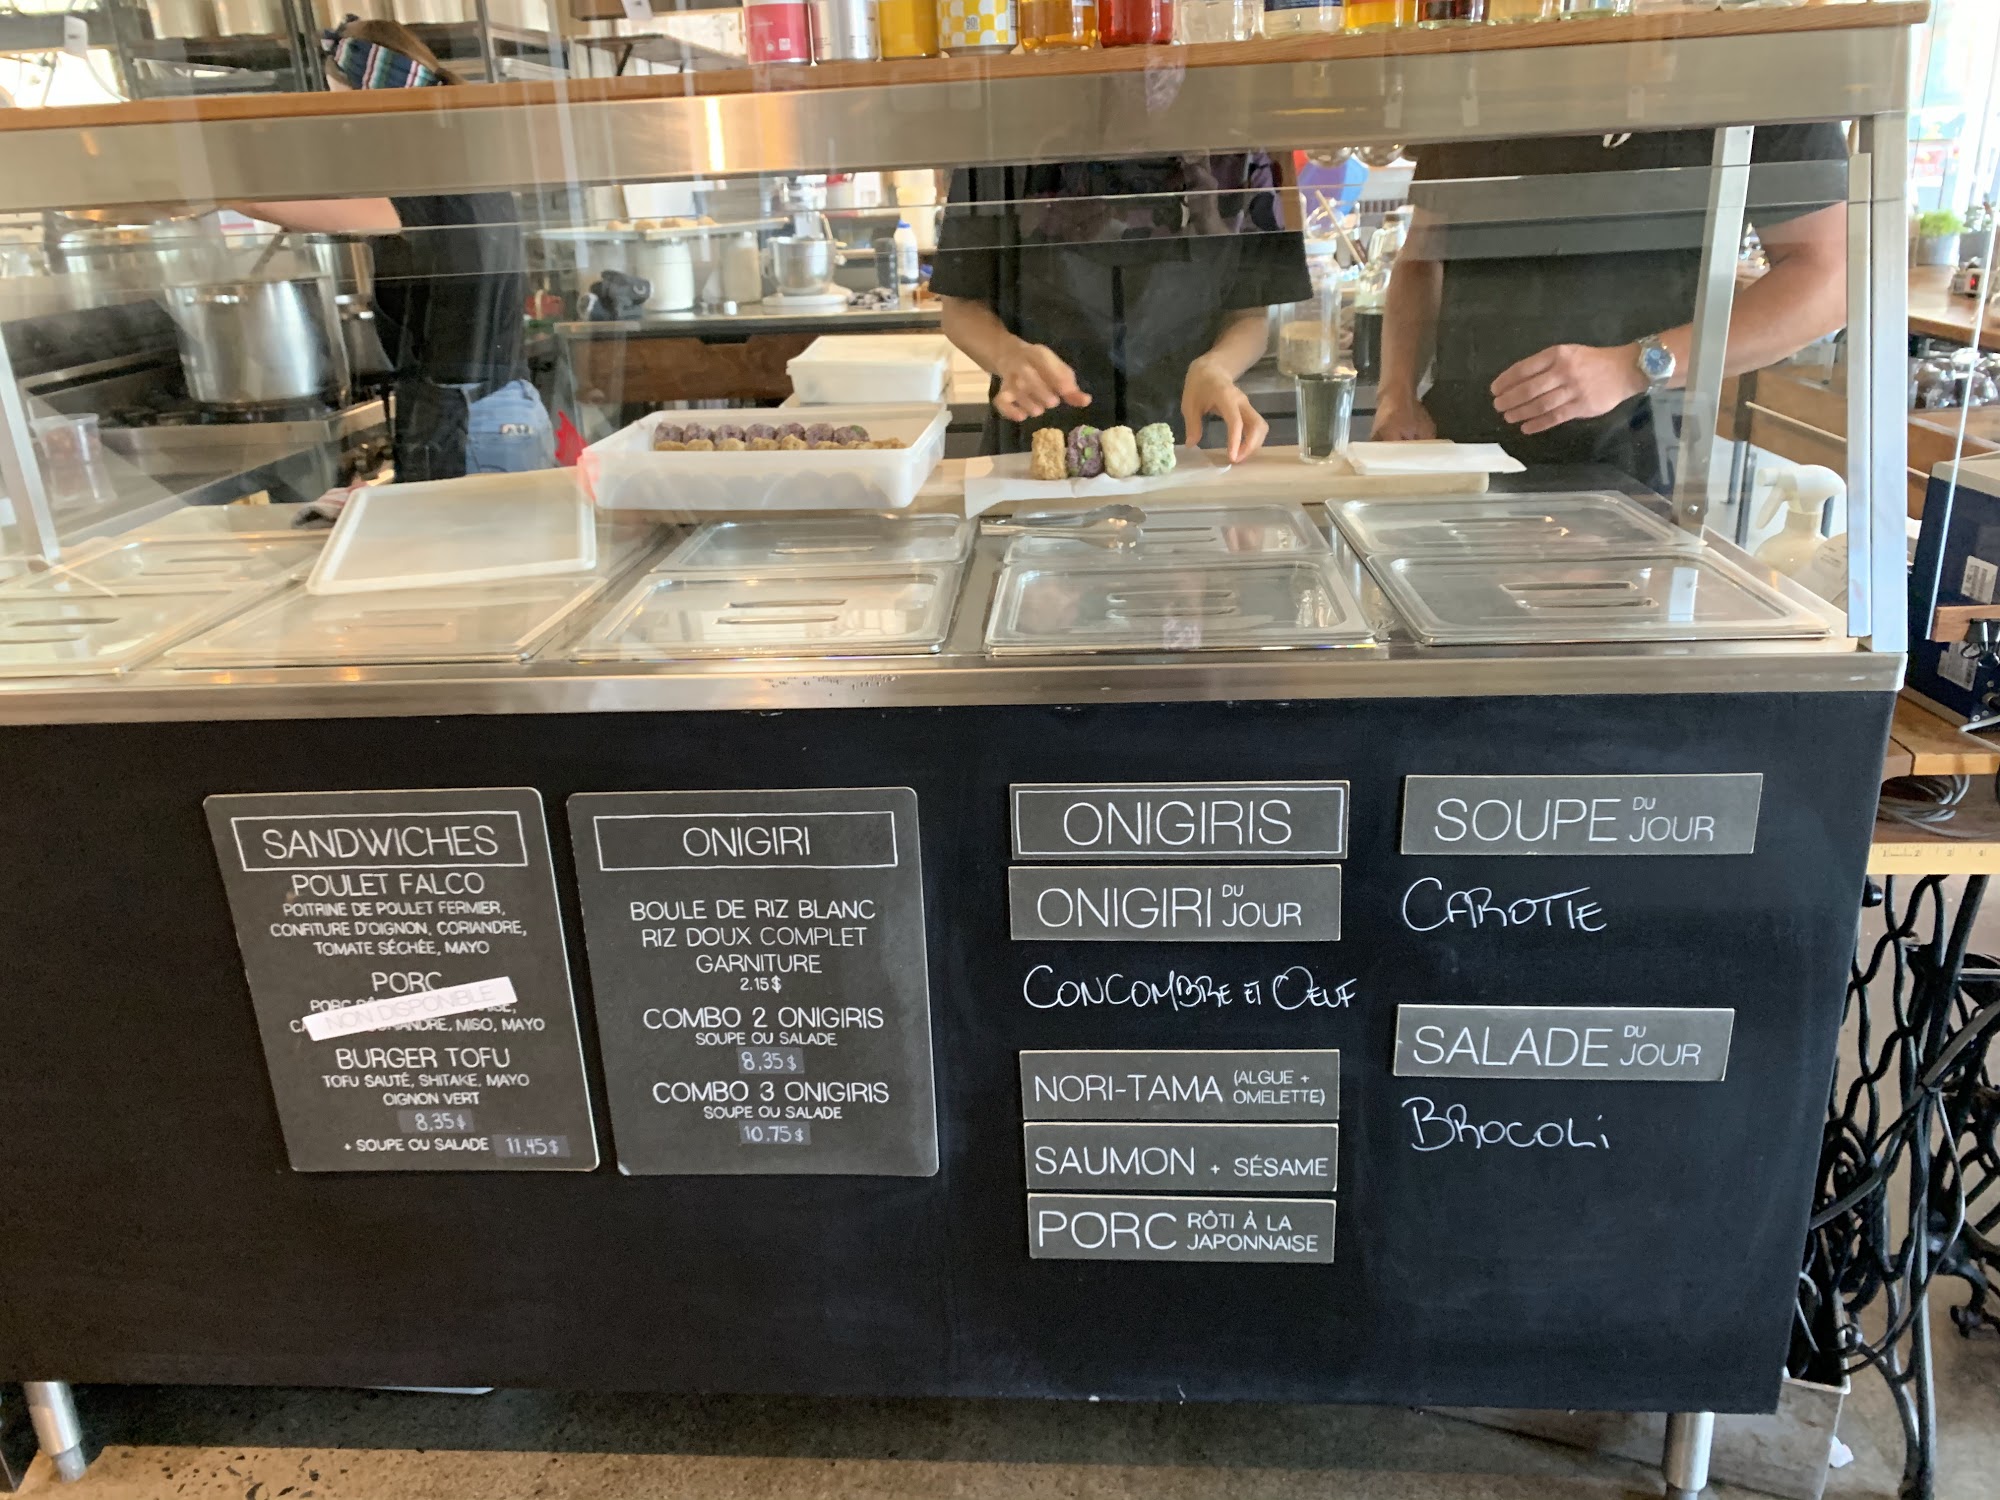 SANDWICHES
POULET FALCO
POITRINE DE POULET FERMIER,
CONFITURE D'OIGNON, CORIANDRE,
TOMATE SÉCHÉE, MAYO
PORC
NON DISPONIBLE
MISO, MAYO
BURGER TOFU
TOFU SAUTÉ, SHITAKE, MAYO
OIGNON VERT
8,35$
+ SOUPE OU SALADE 11,45$
ONIGIRI
BOULE DE RIZ BLANC
RIZ DOUX COMPLET
GARNITURE
2.15$
COMBO 2 ONIGIRIS
SOUPE OU SALADE
8,35$
COMBO 3 ONIGIRIS
SOUPE OU SALADE
10.75$
ONIGIRIS
ONIGIRI DU JOUR
CONCOMBRE ET OEUF
NORI-TAMA (ALGUE + OMELETTE)
SAUMON + SÉSAME
PORC RÔTI À LA JAPONNAISE
SOUPE DU JOUR
CAROTTE
SALADE DU JOUR
BROCOLI